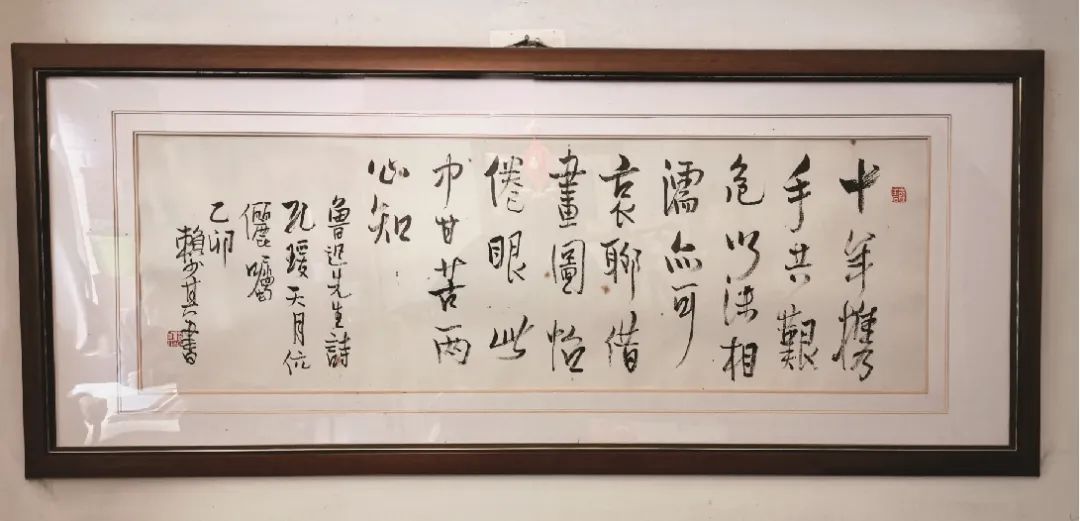 十年攜
手共艱
危以沫相
濡亦可
哀聊借
畫圖怡
倦眼此
中甘苦兩
心知
魯迅先生詩
孔瑗天月伉
儷囑
乙卯
賴少其書